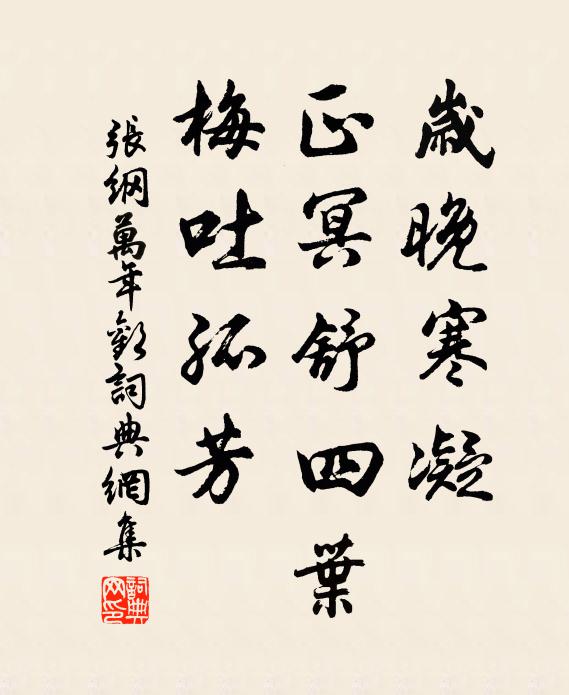 歲晚寒凝
正冥舒四葉
梅吐孤芳
張綱萬年歡詞典網集
詞典网印